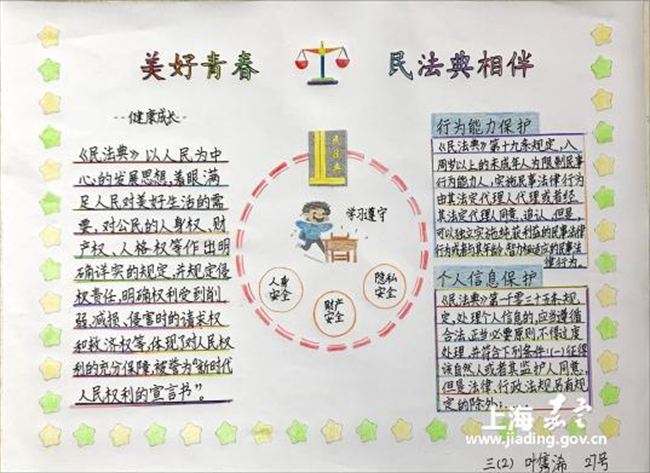 美好青春 民法典相伴
--健康成长--
《民法典》以人民为中
心的发展思想,着眼满
足人民对美好生活的需
要,对公民的人身权、财
产权、人格权等作出明
确详实的规定,并规定侵
权责任,明确权利受到削
弱、减损、侵害时的请求权
和救济权等,体现了对人民权
利的充分保障,被誉为“新时代
人民权利的宣言书”。
民法典
学习遵守
人身
安全
财产
安全
隐私
安全
行为能力保护
《民法典》第十九条规定,八
周岁以上的未成年人为限制民事
行为能力人,实施民事法律行为
由其法定代理人代理或者经
其法定代理人同意、追认,但是,
可以独立实施纯获利益的民事法律
行为或者与其年龄、智力相适应的民事法
律行为。
个人信息保护
《民法典》第一千零三十五条规
定,处理个人信息的,应当遵循
合法、正当、必要原则,不得过度
处理,并符合下列条件:(一)征得
该自然人或者其监护人同意,
但是法律、行政法规另有规
定的除外;
上海嘉定
www.jiading.gov.cn
三(2) 叶 27号